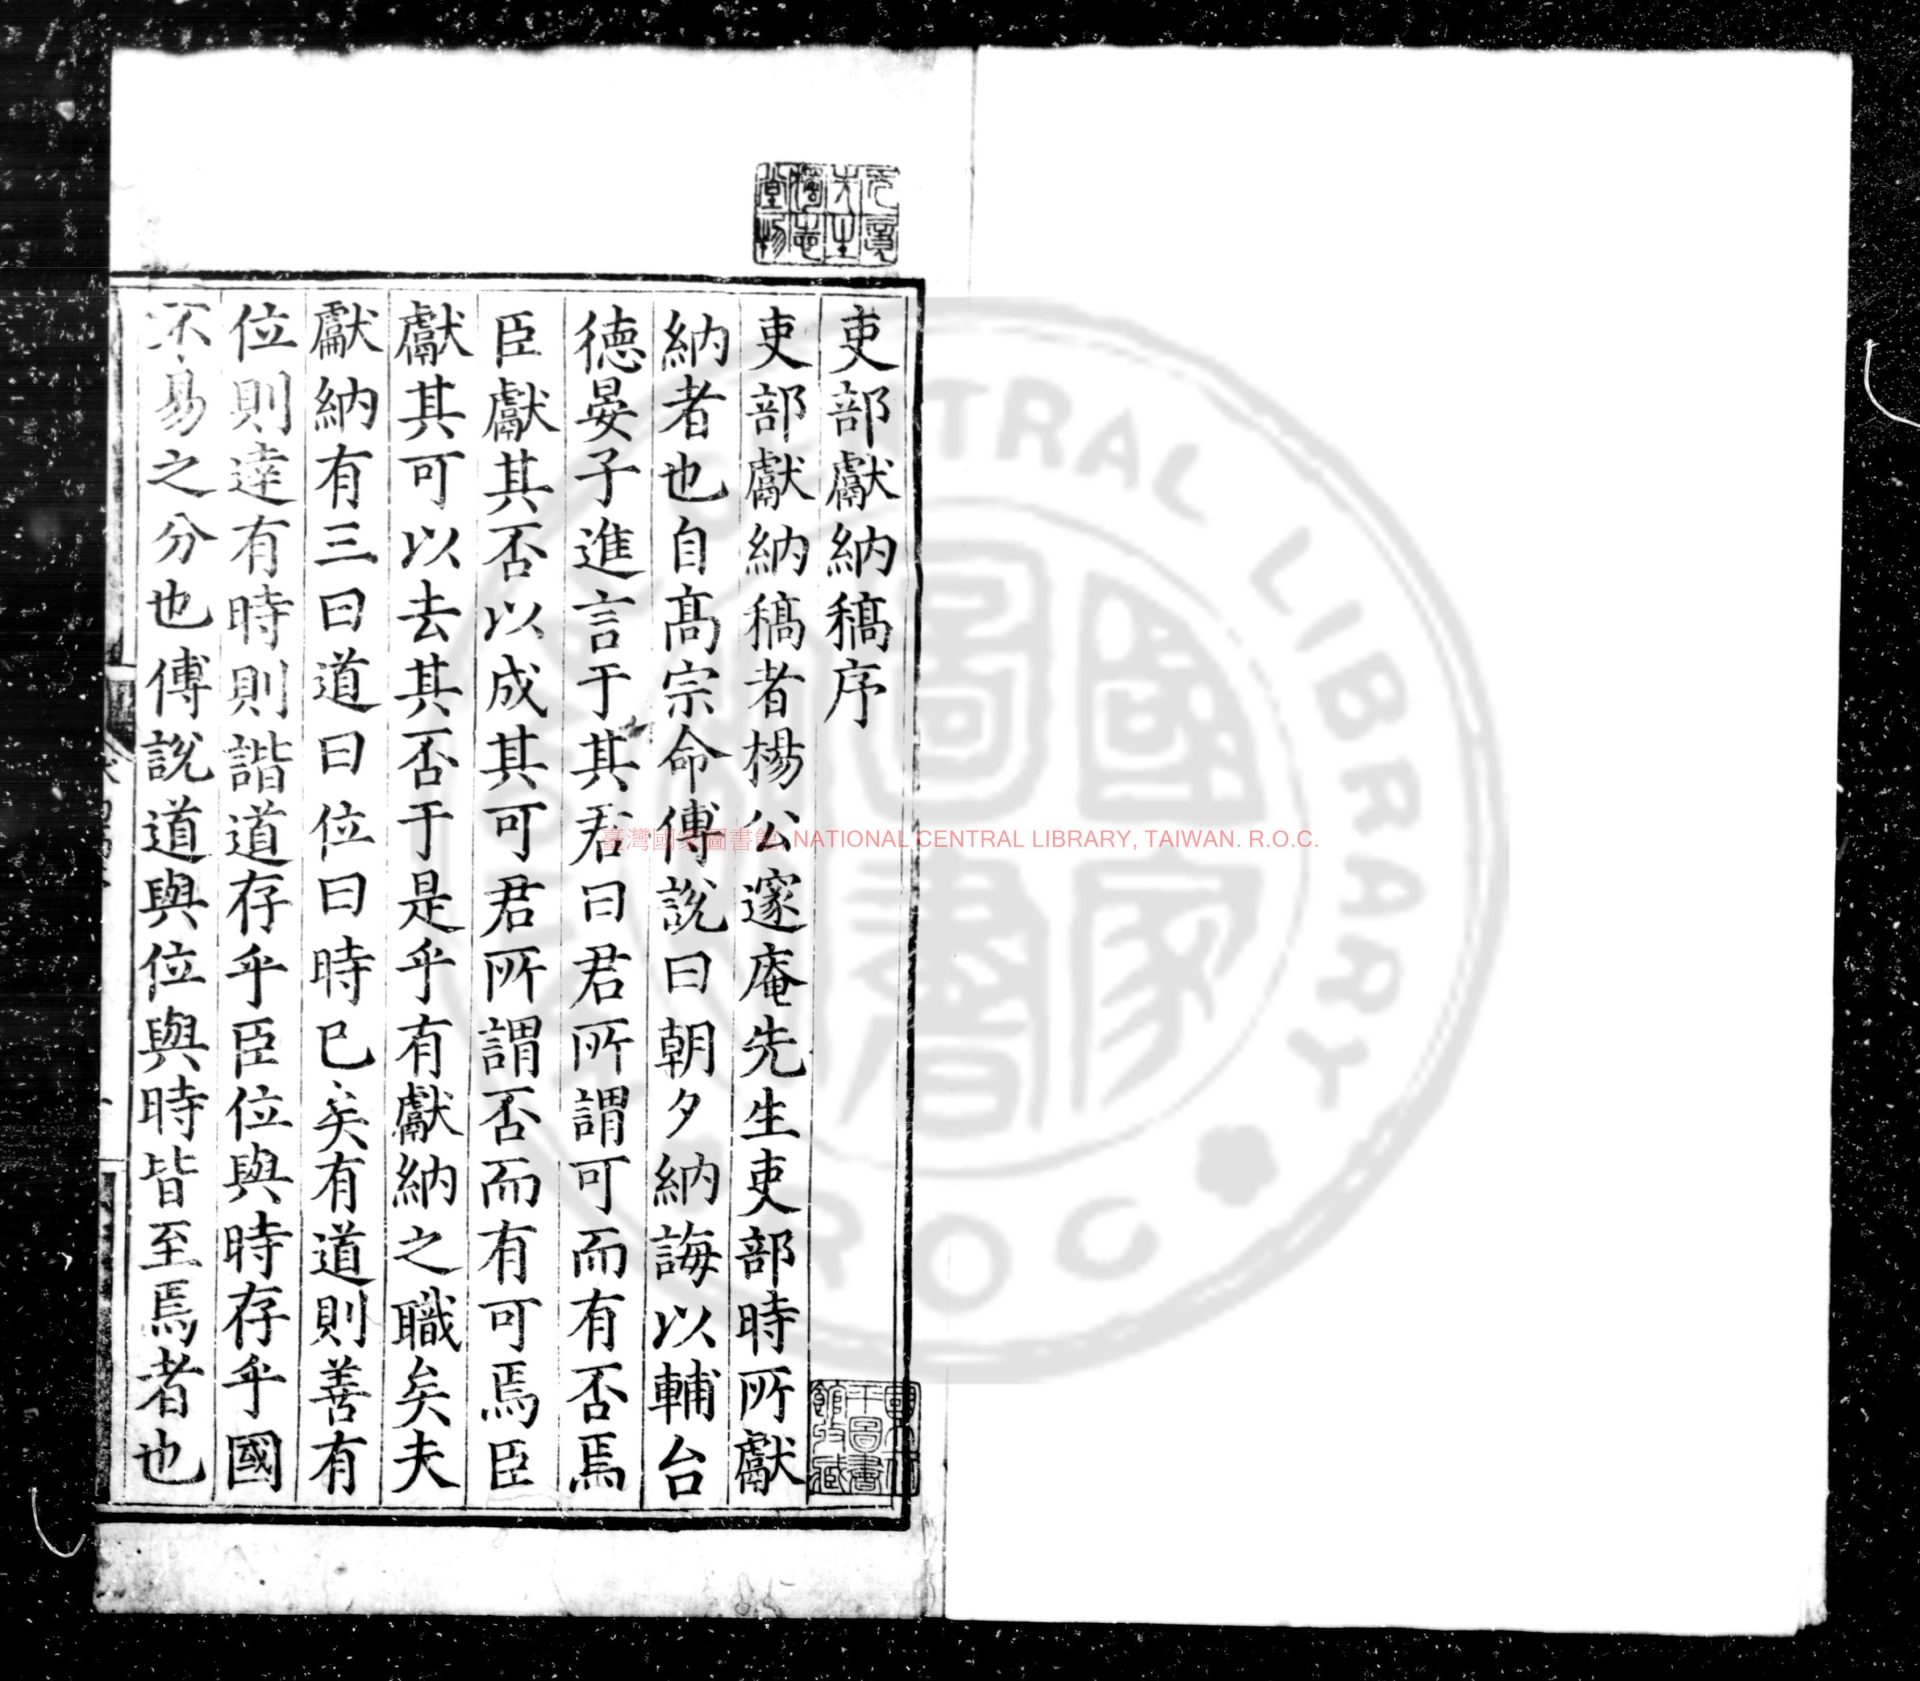 吏部獻納稿序
吏部獻納稿者楊公邃庵先生吏部時所獻
納者也自髙宗命傅說曰朝夕納誨以輔台
徳晏子進言于其君曰君所謂可而有否焉
臣獻其否以成其可君所謂否而有可焉臣
獻其可以去其否于是乎有獻納之職矣夫
獻納有三曰道曰位曰時已矣有道則善有
位則達有時則諧道存乎臣位與時存乎國
不易之分也傅說道與位與時皆至焉者也
臺灣國家圖書館, NATIONAL CENTRAL LIBRARY, TAIWAN. R.O.C.
國家圖書
CENTRAL LIBRARY
R O C